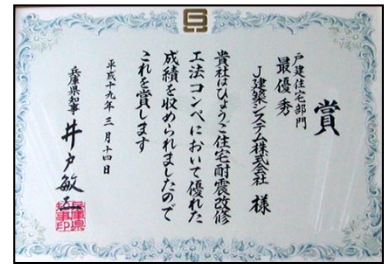 賞
戸建住宅部門
最優秀
J建築システム株式会社 様
貴社はひょうご住宅耐震改修
工法コンペにおいて優れた
成績を収められましたので
これを賞します
平成十九年三月十四日
兵庫県知事 井戸敏三
兵庫県知事印